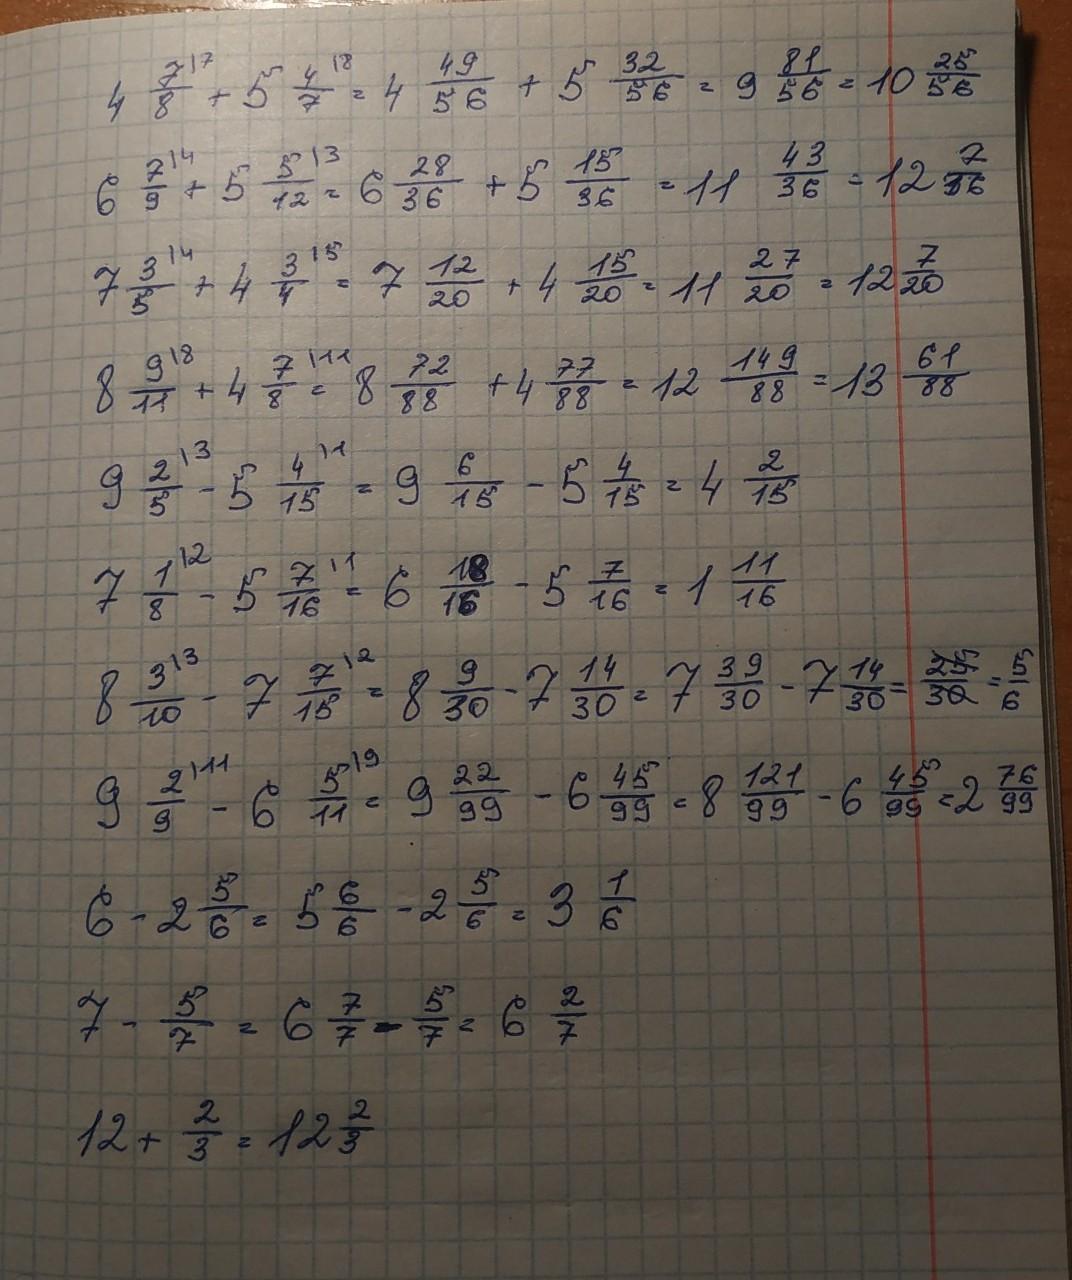 4 7/8|7 + 5 4/7|8 = 4 49/56 + 5 32/56 = 9 81/56 = 10 25/56
6 7/9|4 + 5 5/12|3 = 6 28/36 + 5 15/36 = 11 43/36 = 12 7/36
7 3/5|4 + 4 3/4|5 = 7 12/20 + 4 15/20 = 11 27/20 = 12 7/20
8 9/11|8 + 4 7/8|11 = 8 72/88 + 4 77/88 = 12 149/88 = 13 61/88
9 2/5|3 - 5 4/15|1 = 9 6/15 - 5 4/15 = 4 2/15
7 1/8|2 - 5 7/16|1 = 6 18/16 - 5 7/16 = 1 11/16
8 3/10|3 - 7 7/15|2 = 8 9/30 - 7 14/30 = 7 39/30 - 7 14/30 = 25/30 = 5/6
9 2/9|11 - 6 5/11|9 = 9 22/99 - 6 45/99 = 8 121/99 - 6 45/99 = 2 76/99
6 - 2 5/6 = 5 6/6 - 2 5/6 = 3 1/6
7 - 5/7 = 6 7/7 - 5/7 = 6 2/7
12 + 2/3 = 12 2/3